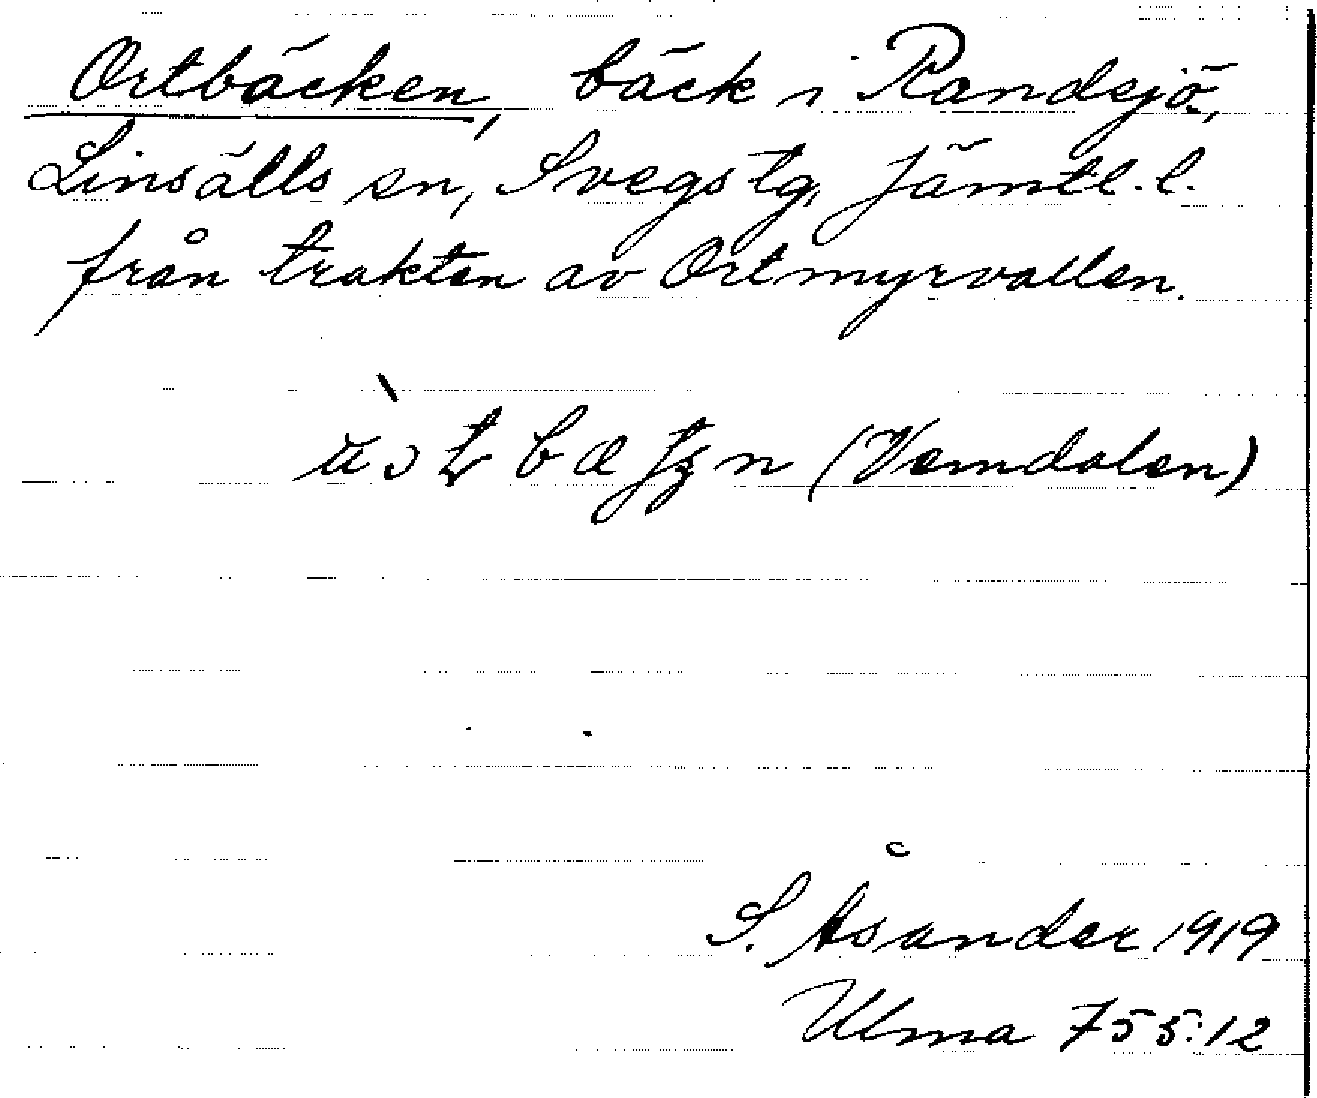 Ortbäcken, bäck i Randsjö,
Linsälls sn, Svegs tg, Jämtl. l.
från trakten av Ortmyrvallen.
(Vemdalen)
S. Åsander 1919
Ulma 755:12